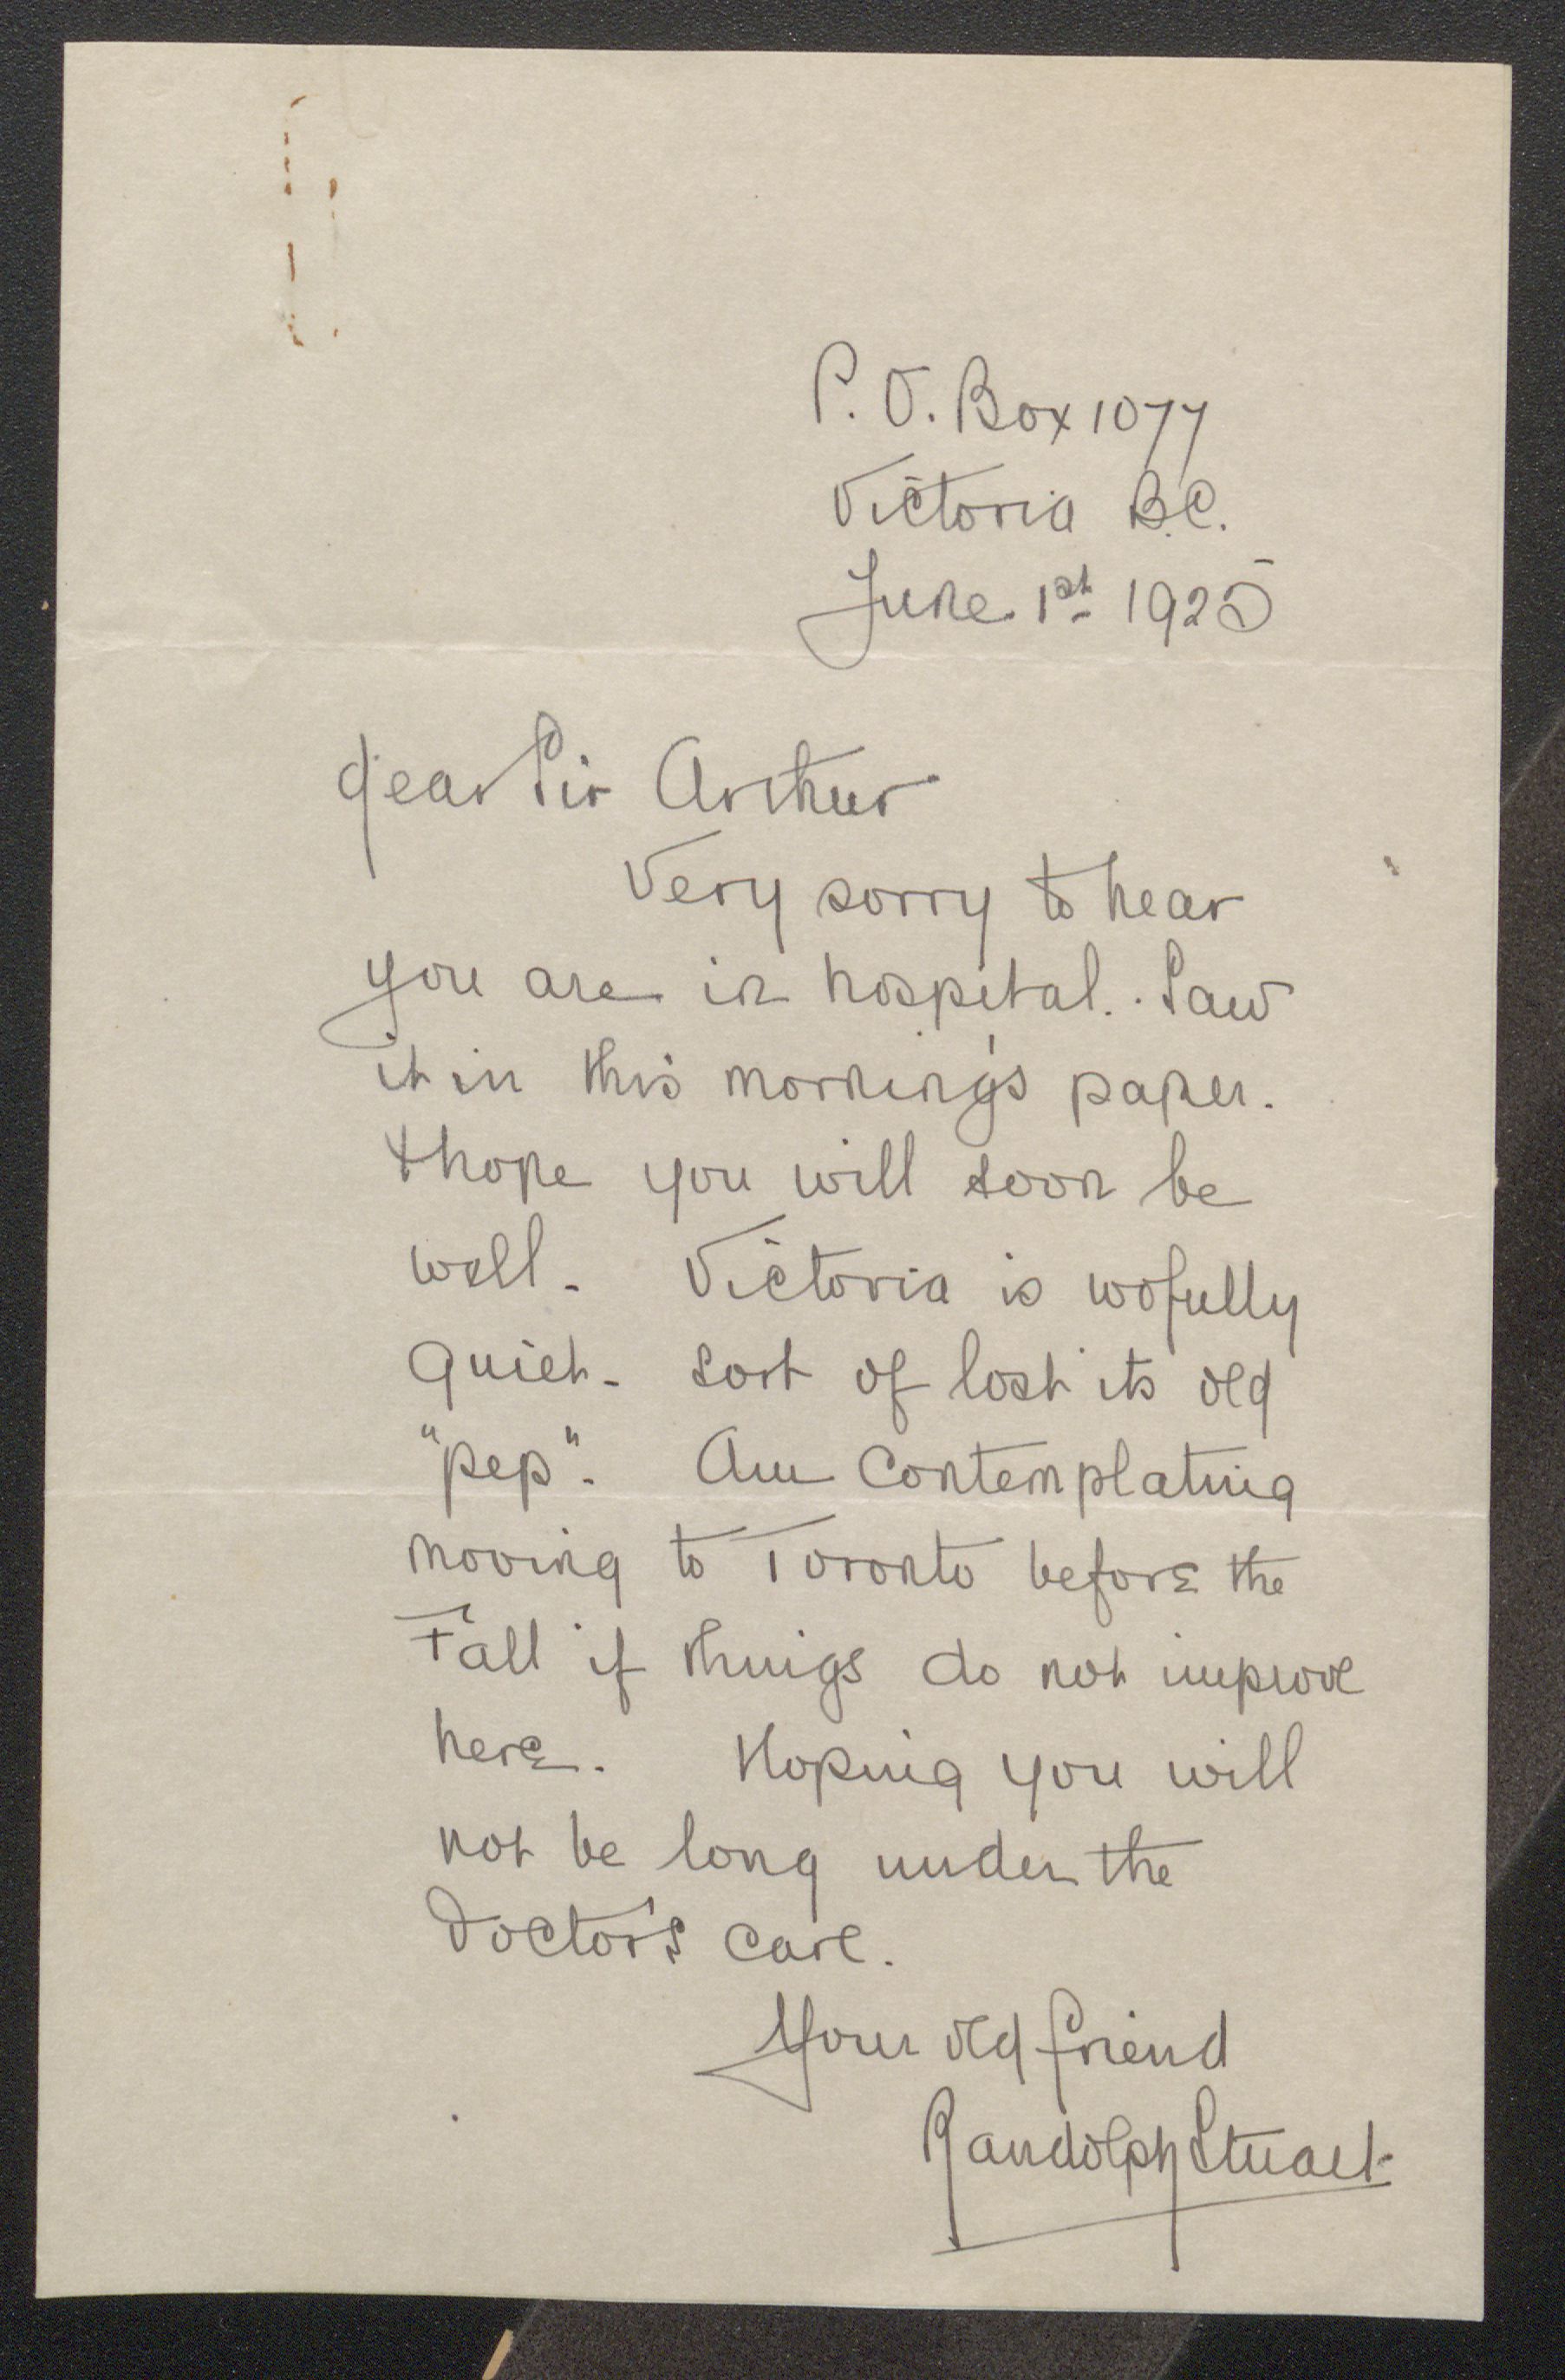 P. O. Box 1077
Victoria B.C.
June 1st 1925
Dear Sir Arthur
Very sorry to hear
you are in hospital. Saw
it in this morning's paper.
& hope you will soon be
well - Victoria is wofully
quiet - sort of lost its old
"pep". Am contemplating
moving to Toronto before the
Fall if things do not improve
here. Hoping you will
not be long under the
Doctor's care.
Your old friend
Randolph Stuart